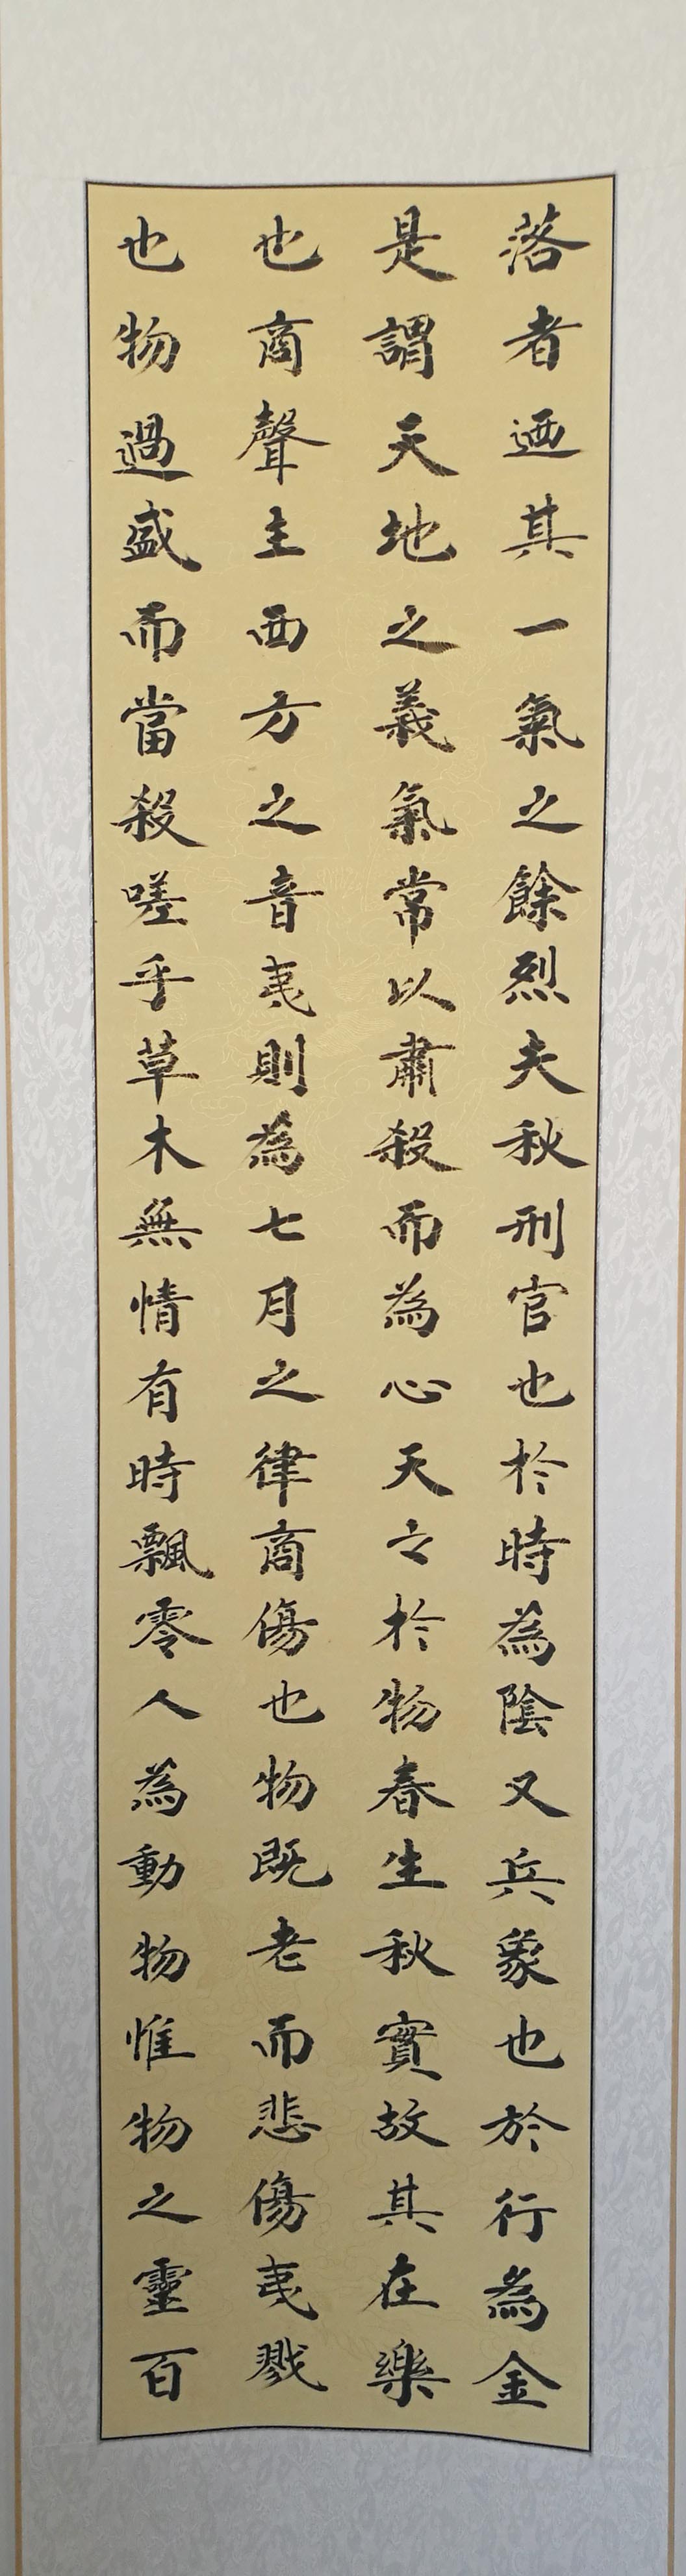 落者迺其一氣之餘烈夫秋刑官也於時為陰又兵象也於行為金
是謂天地之義氣常以肅殺而為心天之於物春生秋實故其在樂
也商聲主西方之音夷則為七月之律商傷也物既老而悲傷夷戮
也物過盛而當殺嗟乎草木無情有時飄零人為動物惟物之靈百